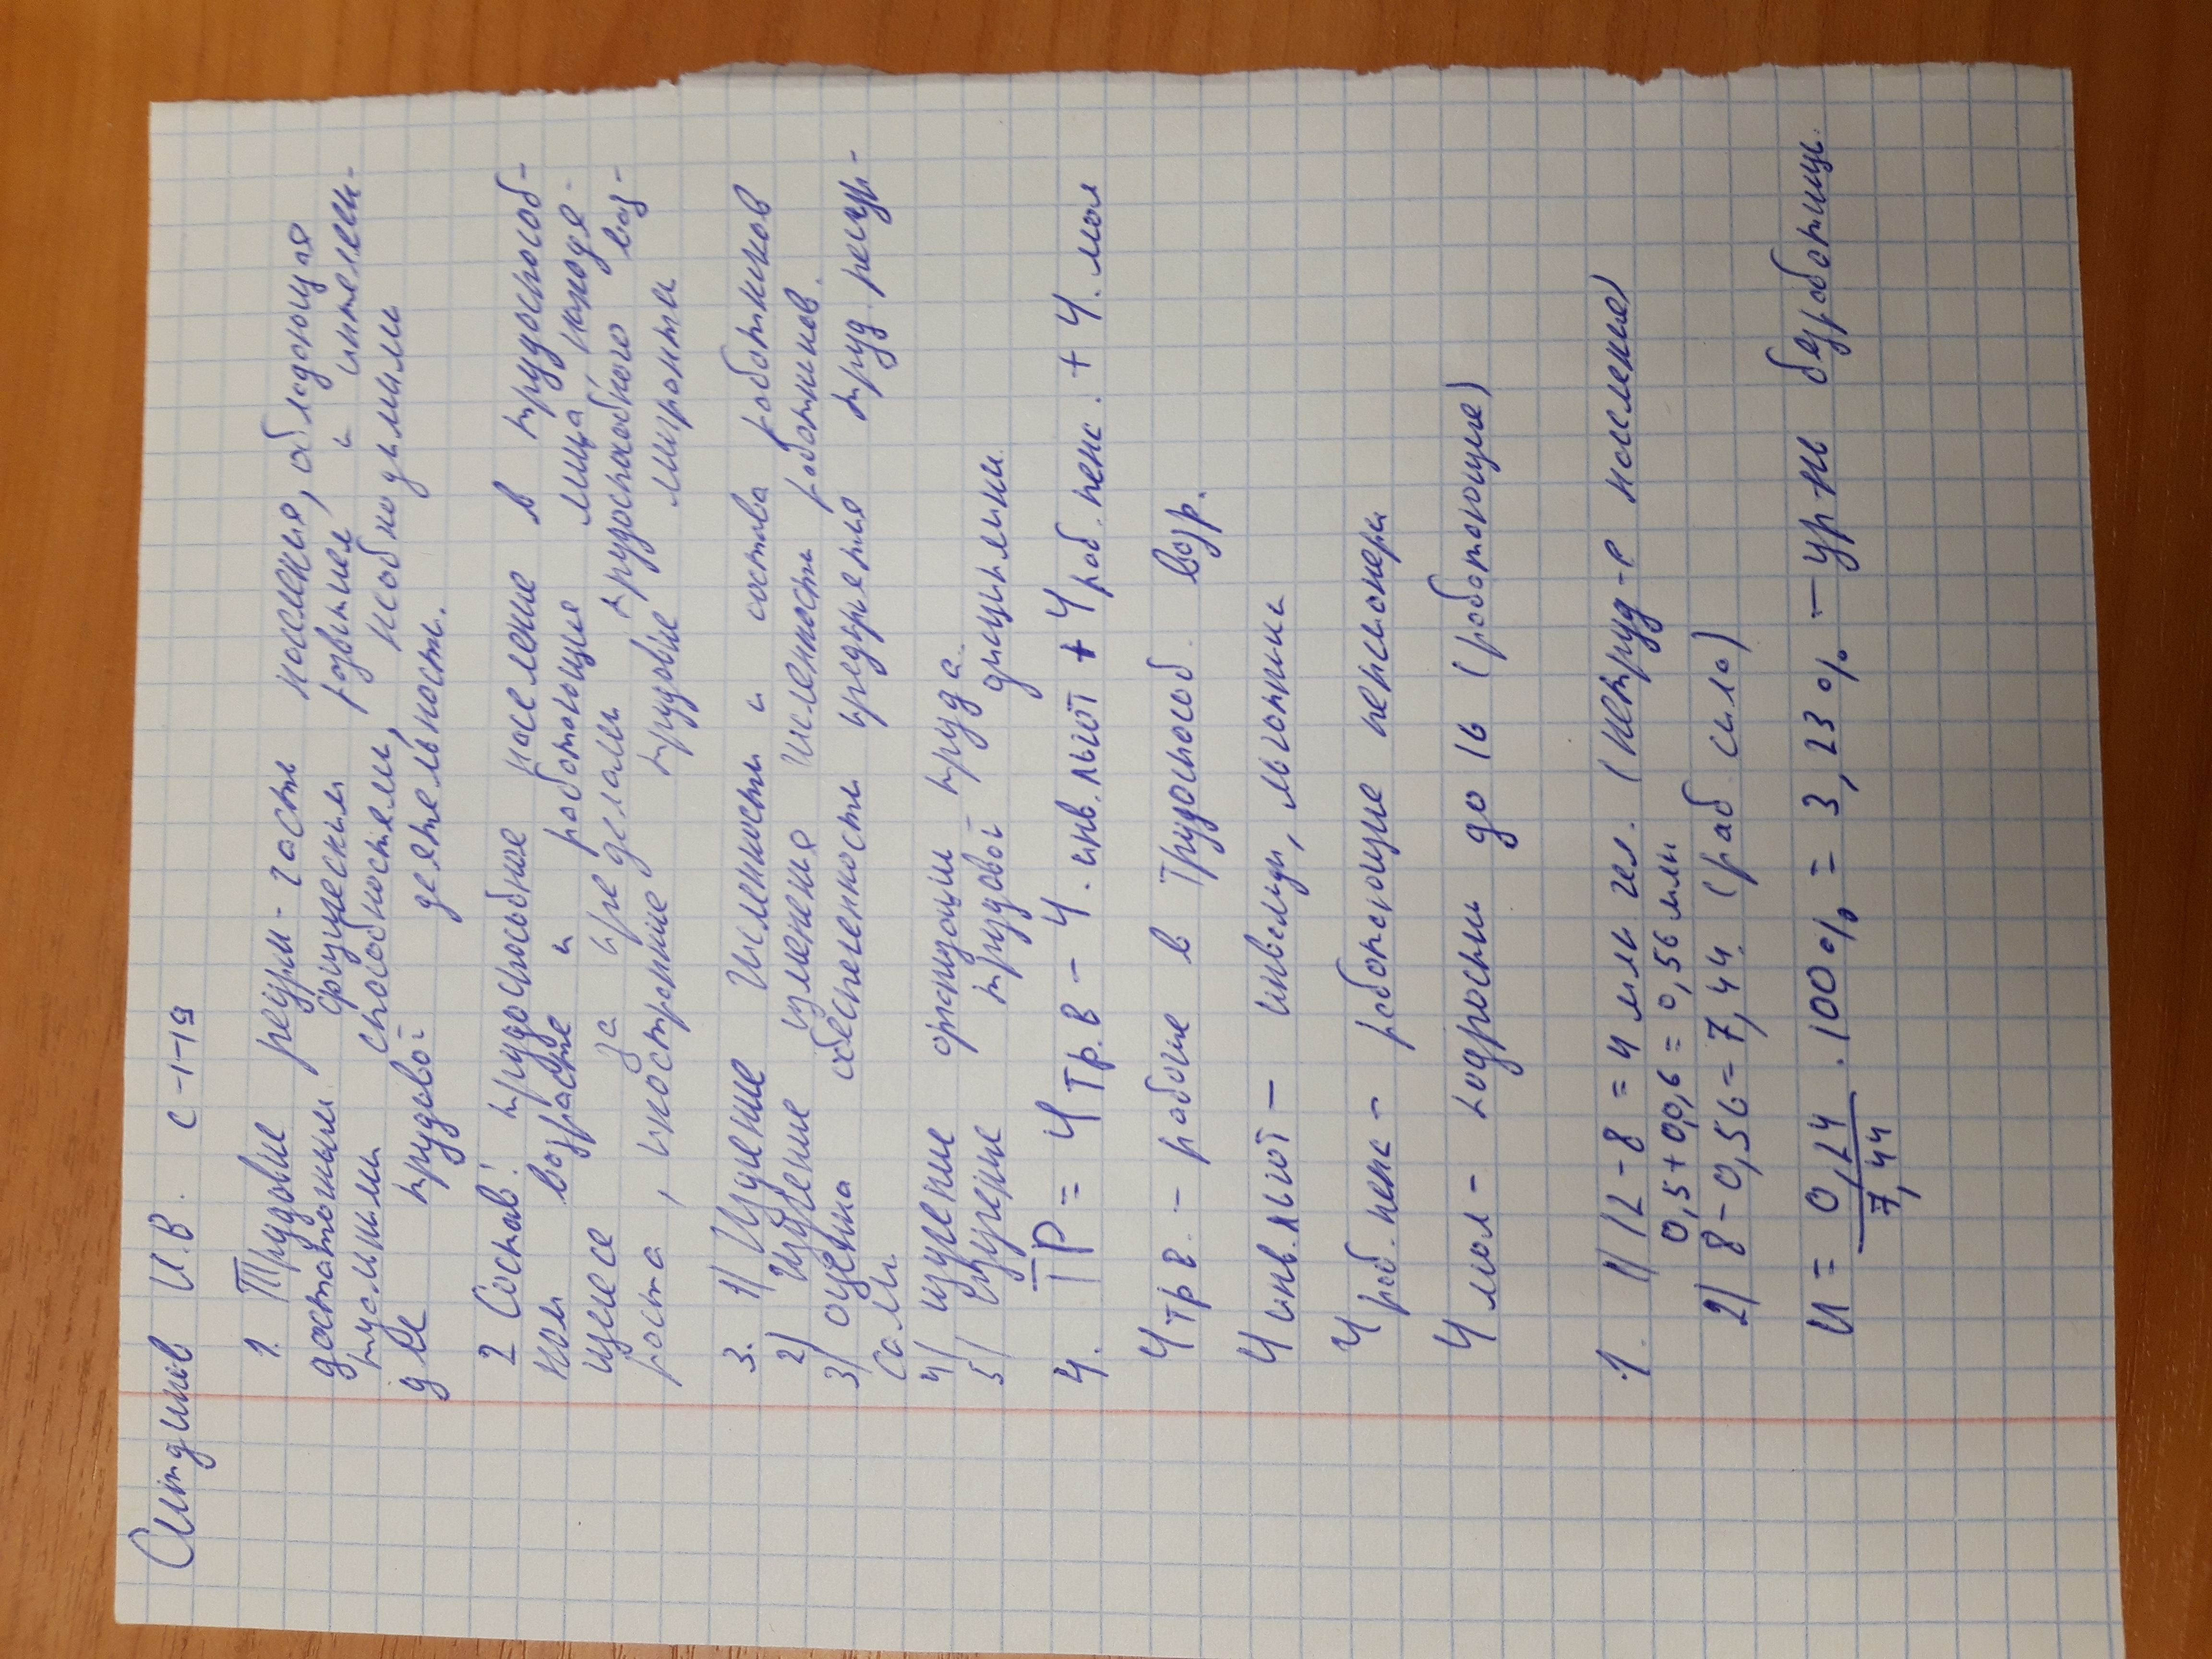 Ситдиков И.В. С-1-19
1. Трудовые ресурсы - часть населения, обладающая
достаточным физическим развитием и интеллек-
туальными способностями, необходимыми
для трудовой деятельности.
2 Состав: трудоспособное население в трудоспособ-
ном возрасте и работающие лица, находя-
щиеся за пределами трудоспособного воз-
раста, иностранные трудовые мигранты
3. 1) Изучение численности и состава работников
2) Изучение изменения численности работников.
3) оценка обеспеченности предприятия труд. ресур-
сами
4) изучение организации труда.
5) Изучение трудовой дисциплины.
4. ТР = Ч тр.в - Ч. инв.льгот + Ч раб.пенс. + Ч. мол
Ч тр в. - рабочие в трудоспособ. возр.
Ч инв.льгот - инвалиды, льготники
Ч раб.пенс - работающие пенсионеры
Ч мол - подростки до 16 (работающие)
1. 1) 12 - 8 = 4 млн чел. (нетруд-е население)
0,5 + 0,06 = 0,56 млн
2) 8 - 0,56 = 7,44 (раб. сила)
И = 0,24 / 7,44 · 100% = 3,23 % - ур-нь безработицы.